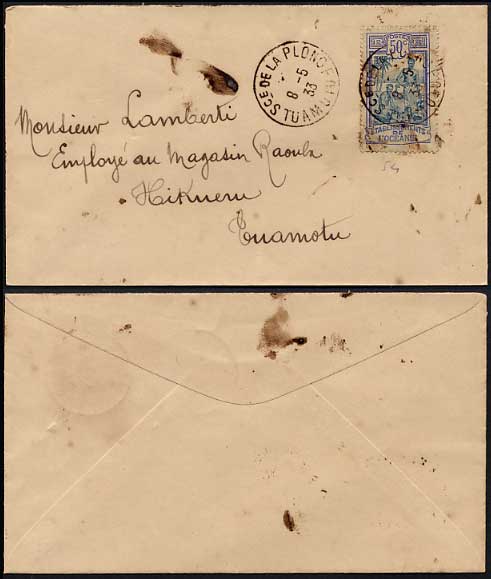 SCE DE LA PLONGE
8 -5
33
TUAMOTU
50c
ETABLISSEMENTS
DE
L'OCEANIE
54
Monsieur Lamberti
Employe au Magasin Raoulx
Hikueru
Tuamotu